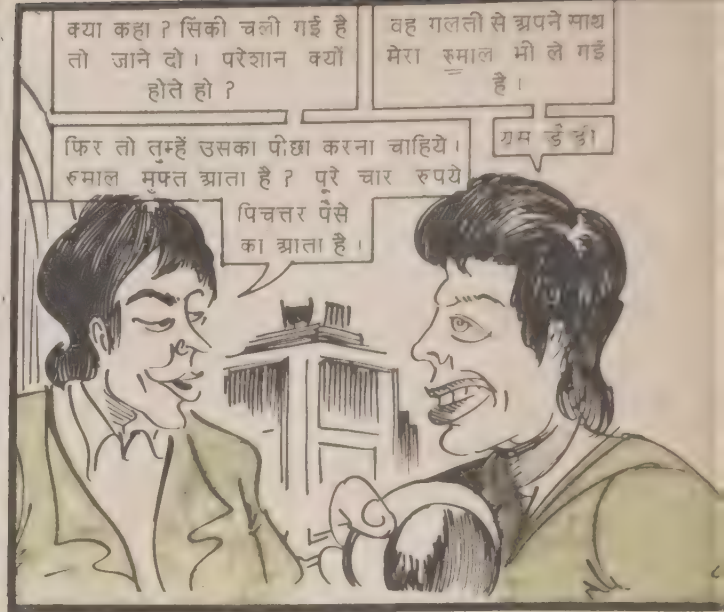 क्या कहा ? सिंकी चली गई है
तो जाने दो । परेशान क्यों
होते हो ?
वह गलती से अपने साथ
मेरा रुमाल भी ले गई
है ।
फिर तो तुम्हें उसका पीछा करना चाहिये ।
रुमाल मुफ्त आता है ? पूरे चार रुपये
पिचत्तर पैसे
का आता है ।
डैडी